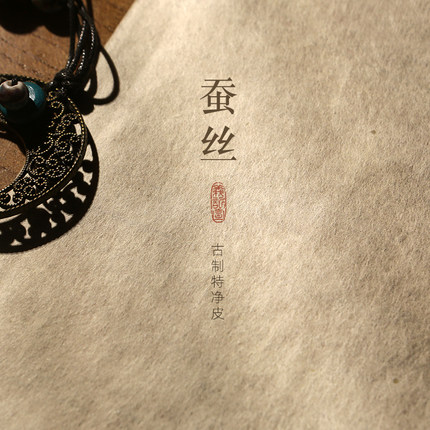 蚕丝
古制特净皮